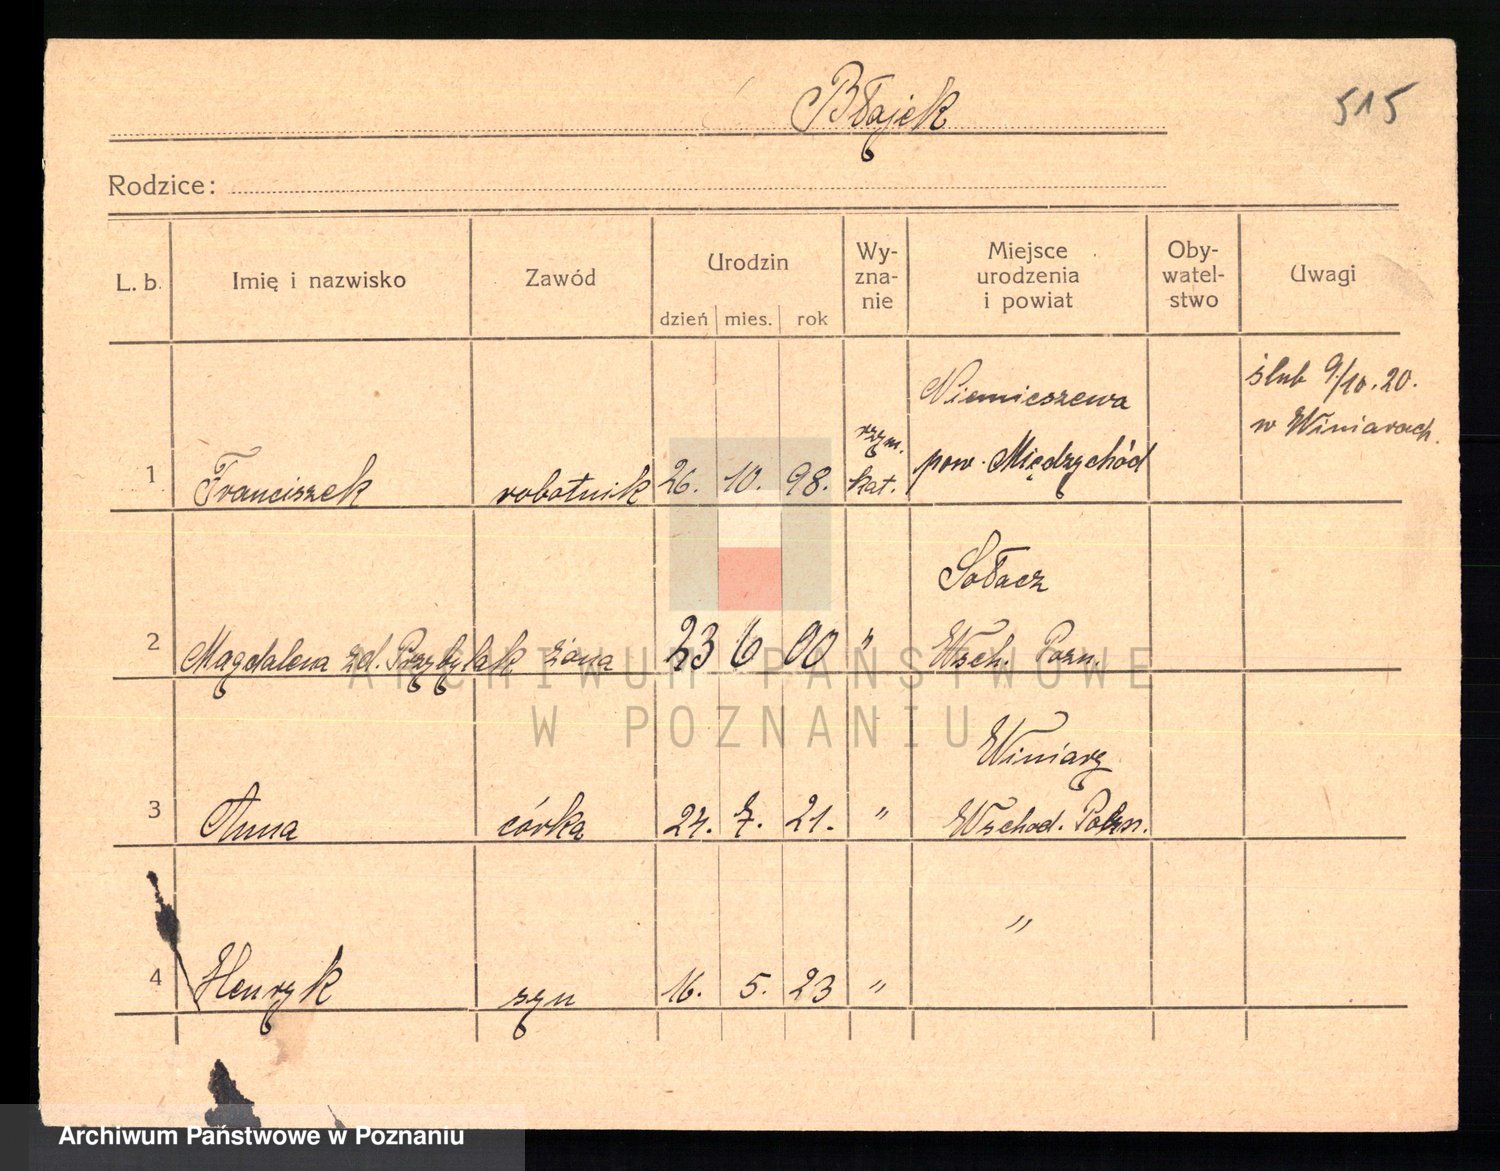 Błajek
515
Rodzice:
L. b. Imię i nazwisko Zawód Urodzin dzień mies. rok Wy-zna-nie Miejsce urodzenia i powiat Oby-watel-stwo Uwagi
Niemieszewa
ślub 9/10.20.
w Winiarach.
rzym.
1 Franciszek robotnik 26. 10. 98. kat. pow. Międzychód
Sołacz
2 Magdalena zd. Przybylak żona 23 6 00 " Wsch. Pozn.
Winiary
3 Anna córka 27. 7. 21. " Wschod. Pozn.
"
4 Henryk syn 16. 5. 23 "
ARCHIWUM PAŃSTWOWE
W POZNANIU
Archiwum Państwowe w Poznaniu